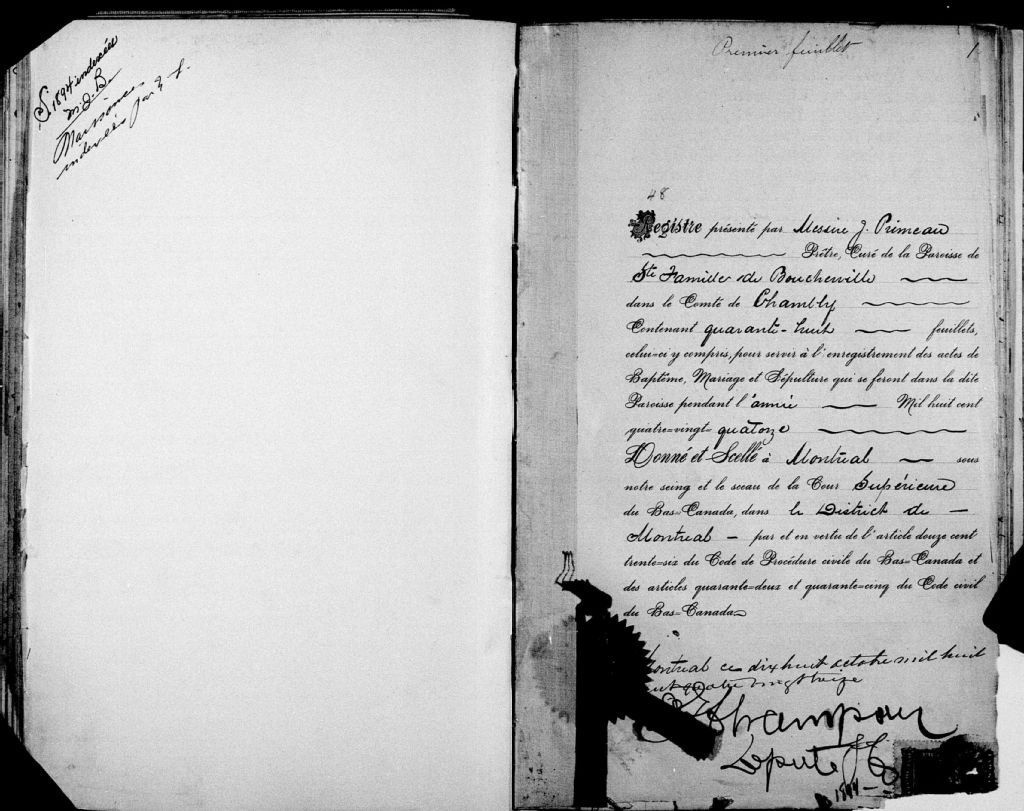 1894 indexée
M.J.B.
indexées par
Premier feuillet 1
48
Registre présenté par Messire J. Primeau
Prêtre, Curé de la Paroisse de
Ste Famille de Boucherville
dans le Comté de Chambly
Contenant quarante-huit feuillets,
celui-ci y compris, pour servir à l'enregistrement des actes de
Baptême, Mariage et Sépulture qui se feront dans la dite
Paroisse pendant l'année Mil huit cent
quatre=vingt= quatorze
Donné et Scellé à Montréal sous
notre seing et le sceau de la Cour Supérieure
du Bas=Canada, dans le District de
Montréal par et en vertu de l'article douze cent
trente=six du Code de Procédure civile du Bas=Canada et
des articles quarante=deux et quarante=cinq du Code civil
du Bas=Canada
ontréal ce dix huit octobre mil huit
quatre vingt treize
Député
1894